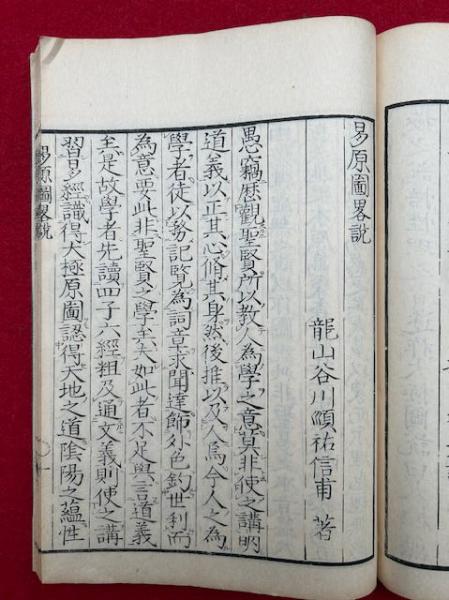 易原圖畧說
龍山谷川順祐信甫 著
愚竊歷觀聖賢所以教人為學之意莫非使之講明
道義以正其心脩其身然後推以及人焉今人之為
學者徒以務記覧為詞章求聞達飾外色釣世利而
為意要此非聖賢之學矣夫如此者不足與言道義
至是故學者先讀四子六經粗及通文義則使之講
習易經識得太極原圖認得天地之道陰陽之蘊性
易原圖畧說